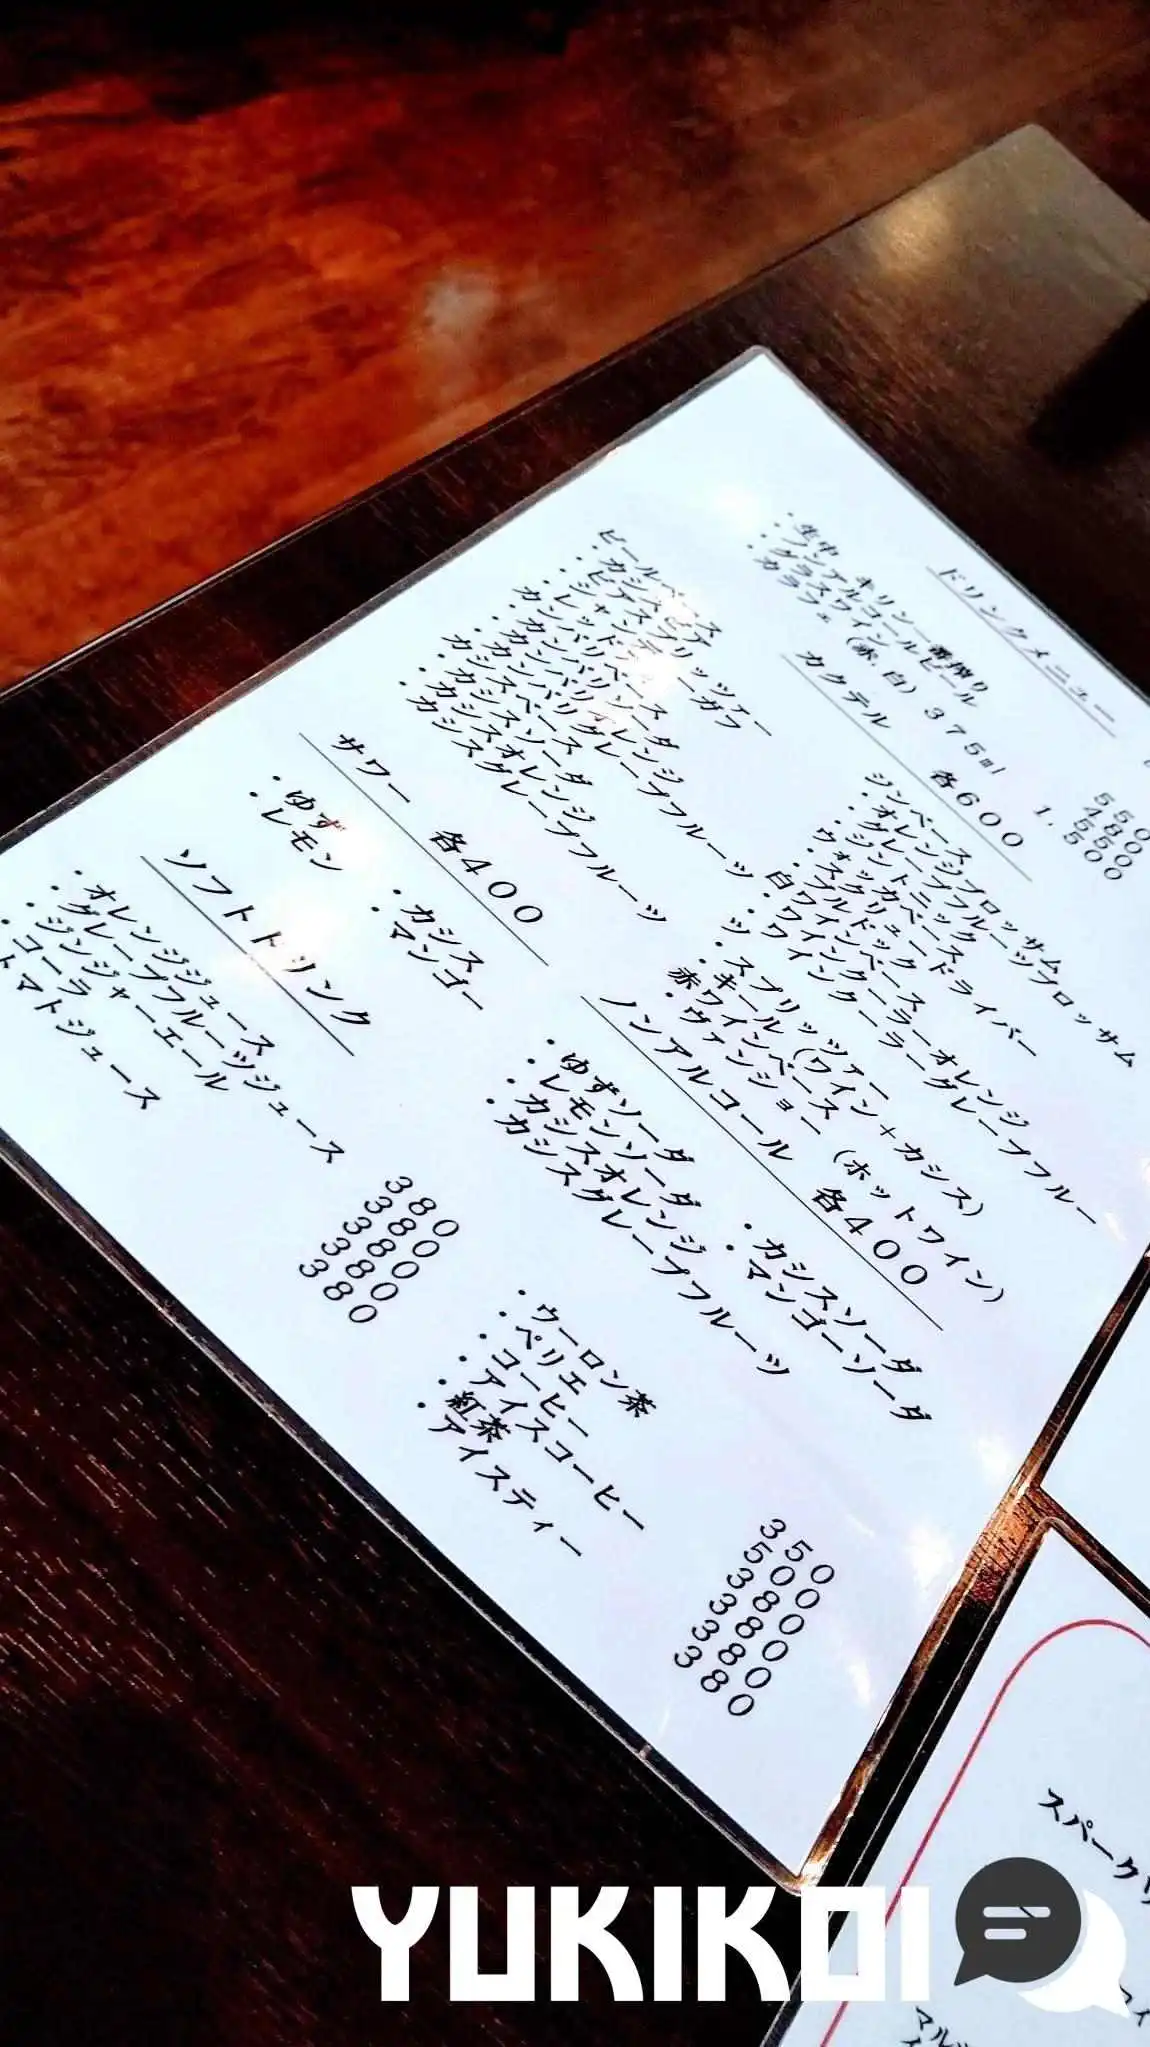 ドリンクメニュー
・生中 キリン一番搾り 550
・ノンアルコールビール 480
・グラスワイン（赤、白） 550
カラフェ 375ml 1,500
カクテル 各600
ビールベース
・カシスビア
・ビアスプリッツァー
・シャンディーガフ
・レッド
カンパリベース
・カンパリソーダ
・カンパリオレンジ
・カンパリグレープフルーツ
カシスベース
・カシスソーダ
・カシスオレンジ
・カシスグレープフルーツ
ジンベース
・オレンジブロッサム
・グレープフルーツブロッサム
・ジントニック
ウォッカベース
・スクリュードライバー
・ブルドック
白ワインベース
・ワインクーラーオレンジ
・ワインクーラーグレープフルー
ツ
・スプリッツァー
・キール（ワイン＋カシス）
赤ワインベース
・ヴァンショー（ホットワイン）
サワー 各400
・ゆず
・レモン
・カシス
・マンゴー
ノンアルコール 各400
・ゆずソーダ
・レモンソーダ
・カシスオレンジ
・カシスグレープフルーツ
・カシスソーダ
・マンゴーソーダ
ソフトドリンク
・オレンジジュース 380
・グレープフルーツジュース 380
・ジンジャーエール 380
・コーラ 380
トマトジュース 380
・ウーロン茶 350
・ペリエ 500
・コーヒー 380
・アイスコーヒー 380
・紅茶 380
・アイスティー 380
スパーク
マル
YUKIKOI